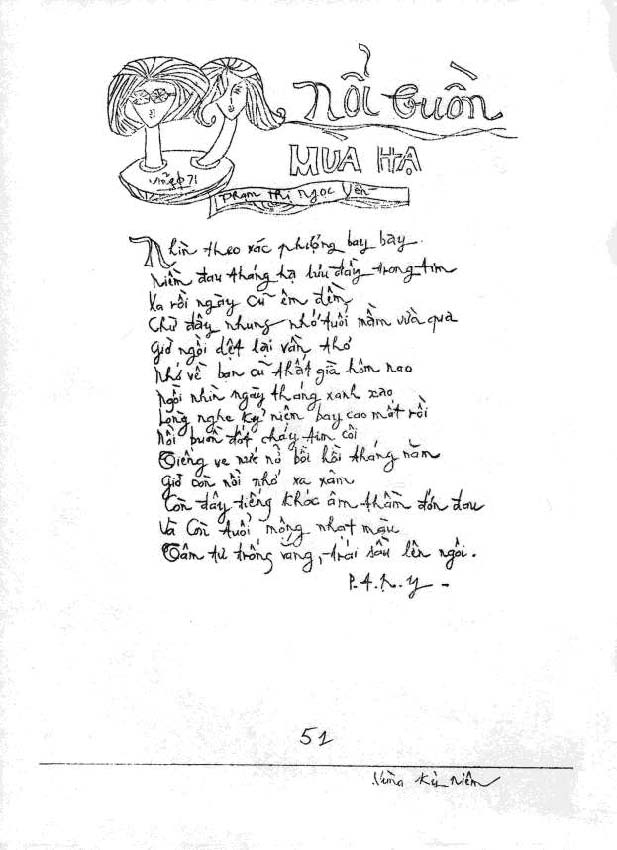 Nổi buồn
MUA HẠ
vĩnh φ 71
Phạm Thị Ngọc Yến
Nhìn theo xác phượng bay bay
Niềm đau tháng hạ lưu đầy trong tim
Xa rồi ngày cũ êm đềm
Chừ đây nhung nhớ tuổi mằm vừa qua
Giờ ngồi dệt lại vần thơ
Nhớ về bạn cũ thất già hôm nao
Ngồi nhìn ngày tháng xanh xao
Lòng nghe kỷ niệm bay cao mất rồi
Nỗi buồn đốt cháy tim côi
Tiếng ve nức nở bồi hồi tháng năm
Giờ còn nỗi nhớ xa xăm
Còn đây tiếng khóc âm thầm đớn đau
Và còn tuổi mộng nhạt mầu
Tâm tư trống vắng, trái sầu lên ngôi.
P.T.N.Y -
51
Kỷ Niệm